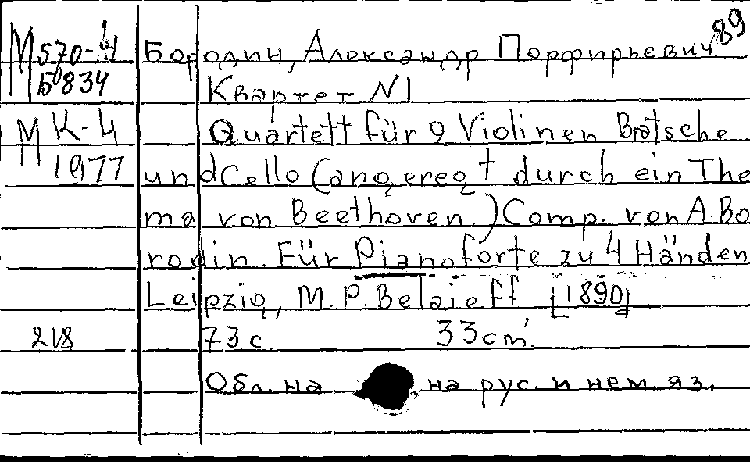 89
М 570-4 Бородин, Александр Порфирьевич
Б834 Квартет N1
М К-4 Quartett für 2 Violinen Bratsche
1977 und Cello (angeregt durch ein The
ma von Beethoven.) Comp. von A. Bo
rodin. Für Pianoforte zu 4 Händen
Leipzig, M. P. Belaieff [1890]
73 с. 33 cm.
Обл. на на рус. и нем яз.